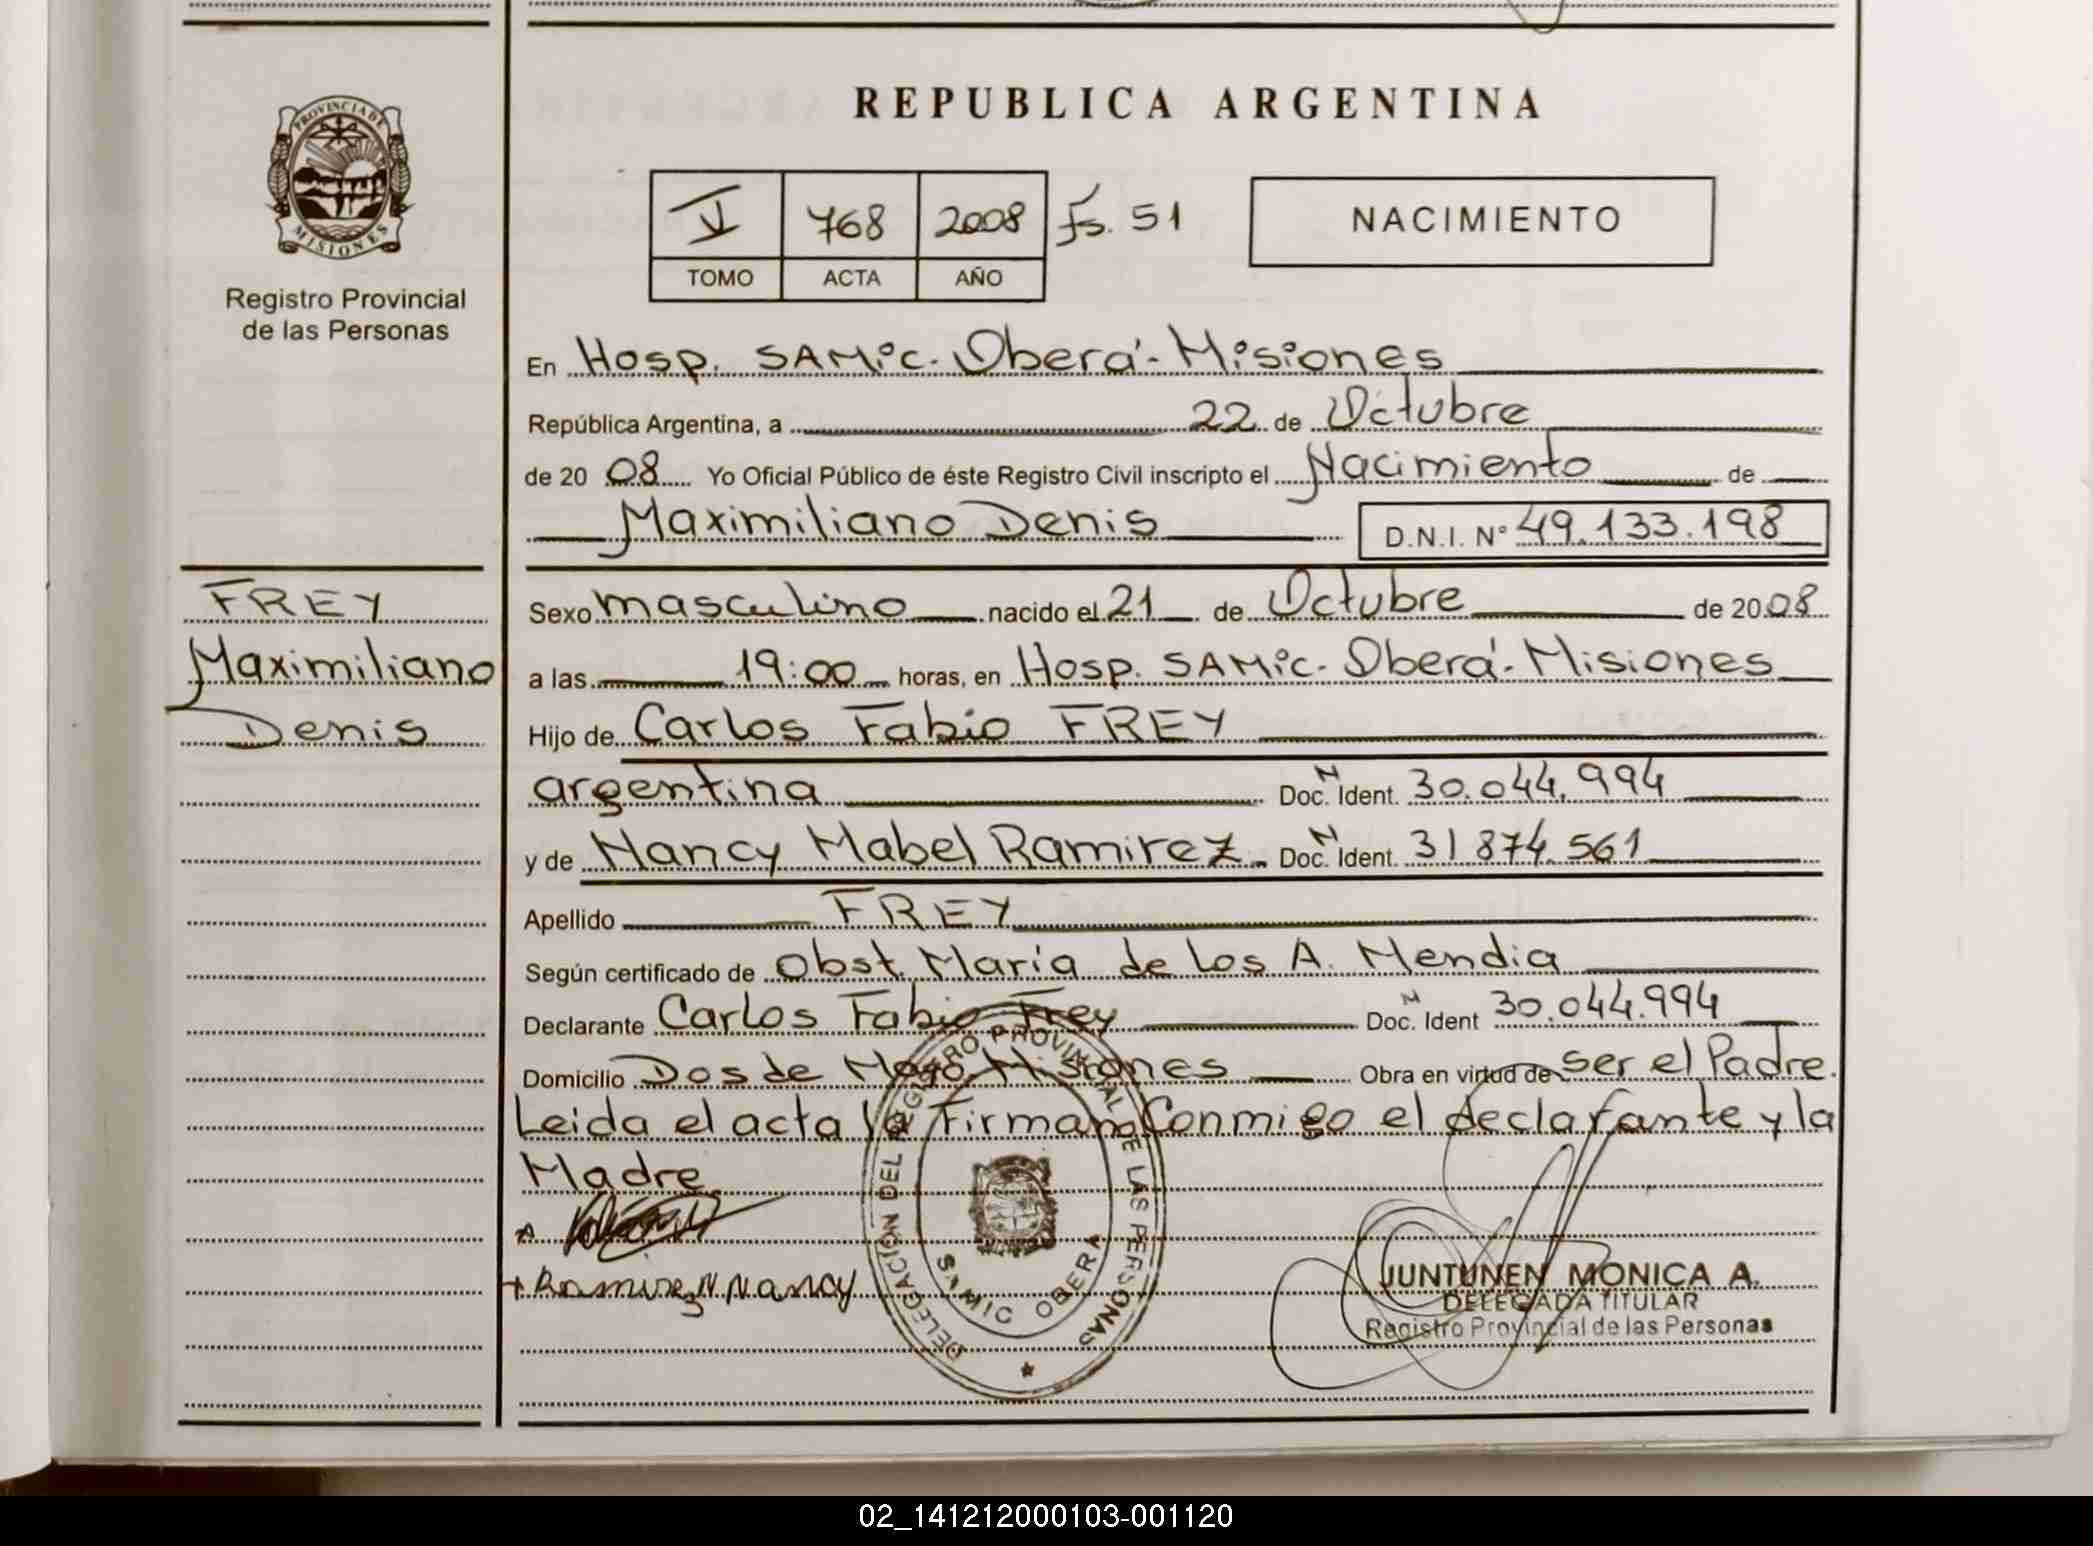 REPUBLICA ARGENTINA
PROVINCIA DE
MISIONES
Registro Provincial
de las Personas
V 768 2008 Fs. 51
TOMO ACTA AÑO
NACIMIENTO
En Hosp. SAMic. Oberá - Misiones
República Argentina, a 22 de Octubre
de 20 08 Yo Oficial Público de éste Registro Civil inscripto el Nacimiento de
Maximiliano Denis D.N.I. Nº 49.133.198
FREY
Maximiliano
Denis
Sexo masculino nacido el 21 de Octubre de 20 08
a las 19:00 horas, en Hosp. SAMic. Oberá - Misiones
Hijo de Carlos Fabio FREY
argentina Doc. N Ident. 30.044.994
y de Nancy Mabel Ramirez Doc. N Ident. 31 874.561
Apellido FREY
Según certificado de Obst. María de los A. Mendia
Declarante Carlos Fabio Frey Doc. N Ident 30.044.994
Domicilio Dos de Mayo Misiones Obra en virtud de ser el Padre.
Leida el acta la Firman Conmigo el declarante y la
Madre
+ Ramirez N Nancy
DELEGACION DEL REGISTRO PROVINCIAL DE LAS PERSONAS
SAMIC OBERA
JUNTUNEN MONICA A.
DELEGADA TITULAR
Registro Provincial de las Personas
02_141212000103-001120